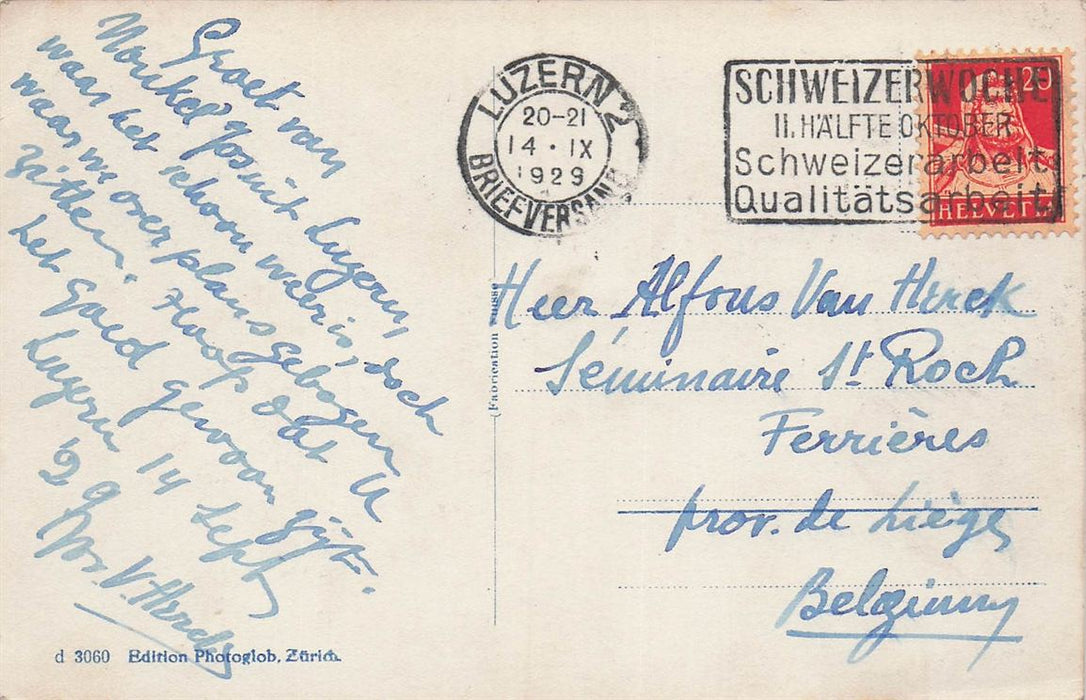 Groet van
Nonkel Jos uit Luzern,
waar het schoon weer is, doch
waar we over plans gebogen
zitten. Hoop dat U
het goed gewoon zijt.
Luzern 14 Sept
29
Jos. V. Herck
LUZERN 2
20-21
14 · IX
1929
BRIEFVERSAND
SCHWEIZERWOCHE
II. HÄLFTE OKTOBER
Schweizerarbeit
Qualitätsarbeit
20
HELVETIA
Heer Alfons Van Herck
Séminaire St. Roch
Ferrières
prov. de Liège
Belgium
(Fabrication Suisse
d 3060 Edition Photoglob, Zürich.